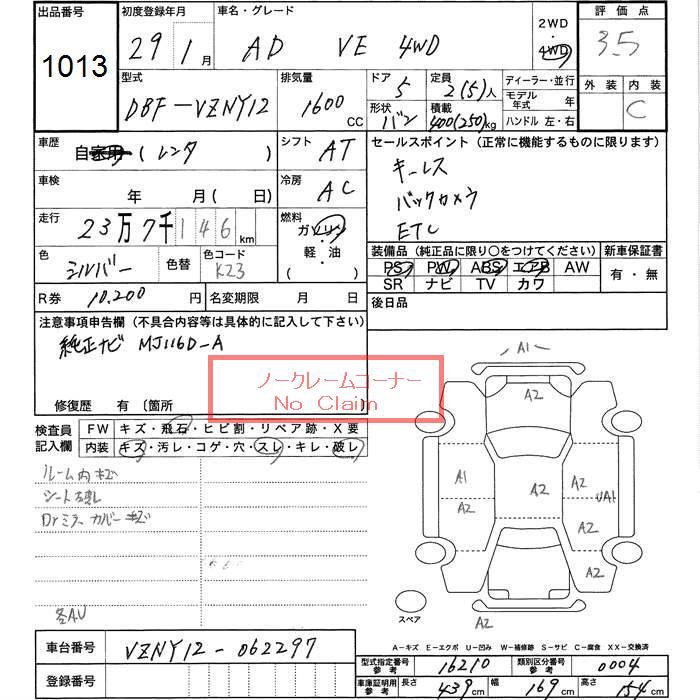 出品番号 初度登録年月 車名・グレード 2WD 評価点
1013 29年 1月 AD VE 4WD 4WD 3.5
型式 排気量 ドア 5 定員 2(5)人 ディーラー・並行 外装 内装
DBF-VZNY12 1600CC 形状 バン 積載 400(250)kg モデル年式 年 C
ハンドル 左・右
車歴 自家用 (レンタ ) シフト AT セールスポイント (正常に機能するものに限ります)
車検 年 月(日) 冷房 AC キーレス
バックカメラ
走行 23万7千146km 燃料 ガソリン ETC
・
軽・油
( )
色 シルバー 色替 色コード K23
装備品 (純正品に限り○をつけてください) 新車保証書
PS PW ABS エアB AW 有・無
SR ナビ TV カワ
R券 10,200円 名変期限 月 日 後日品
注意事項申告欄 (不具合内容等は具体的に記入して下さい)
純正ナビ MJ116D-A
ノークレームコーナー
No Claim
修復歴 有 [箇所 ]
検査員記入欄 FW キズ・飛石・ヒビ割・リペア跡・X要
内装 キズ・汚レ・コゲ・穴・スレ・キレ・破レ
ルーム内キズ
シート破レ
Drミラーカバーキズ
A1
A2
A1 A2 A2 UA1
A2 A2
A2
A2
スペア
A-キズ E-エクボ U-凹み W-補修跡 S-サビ C-腐食 XX-交換済
車台番号 VZNY12-062297
登録番号
型式指定番号 参考 16210 類別区分番号 参考 0004
車庫証明用 参考 長さ 439cm 幅 169cm 高さ 154cm